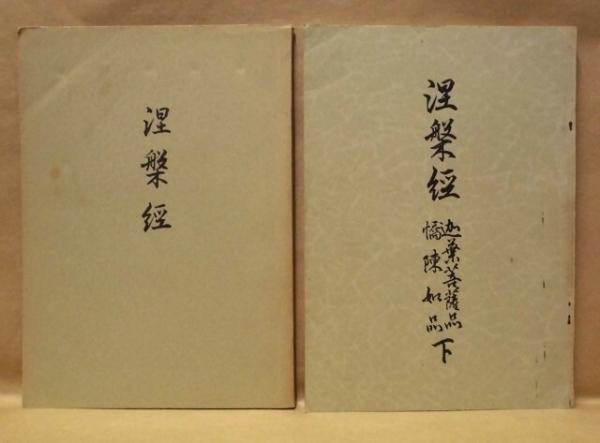 涅槃經
涅槃經
迦葉菩薩品
憍陳如品
下